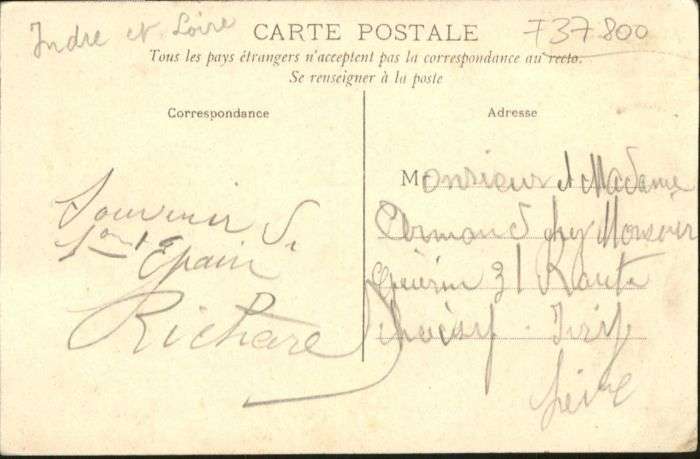 Indre et Loire
F37800
CARTE POSTALE
Tous les pays étrangers n'acceptent pas la correspondance au recto.
Se renseigner à la poste
Correspondance
Adresse
Souvenir de
Epain
Richard
Monsieur et Madame
Armand chez Monsieur
31 Route
Choisy
Seine